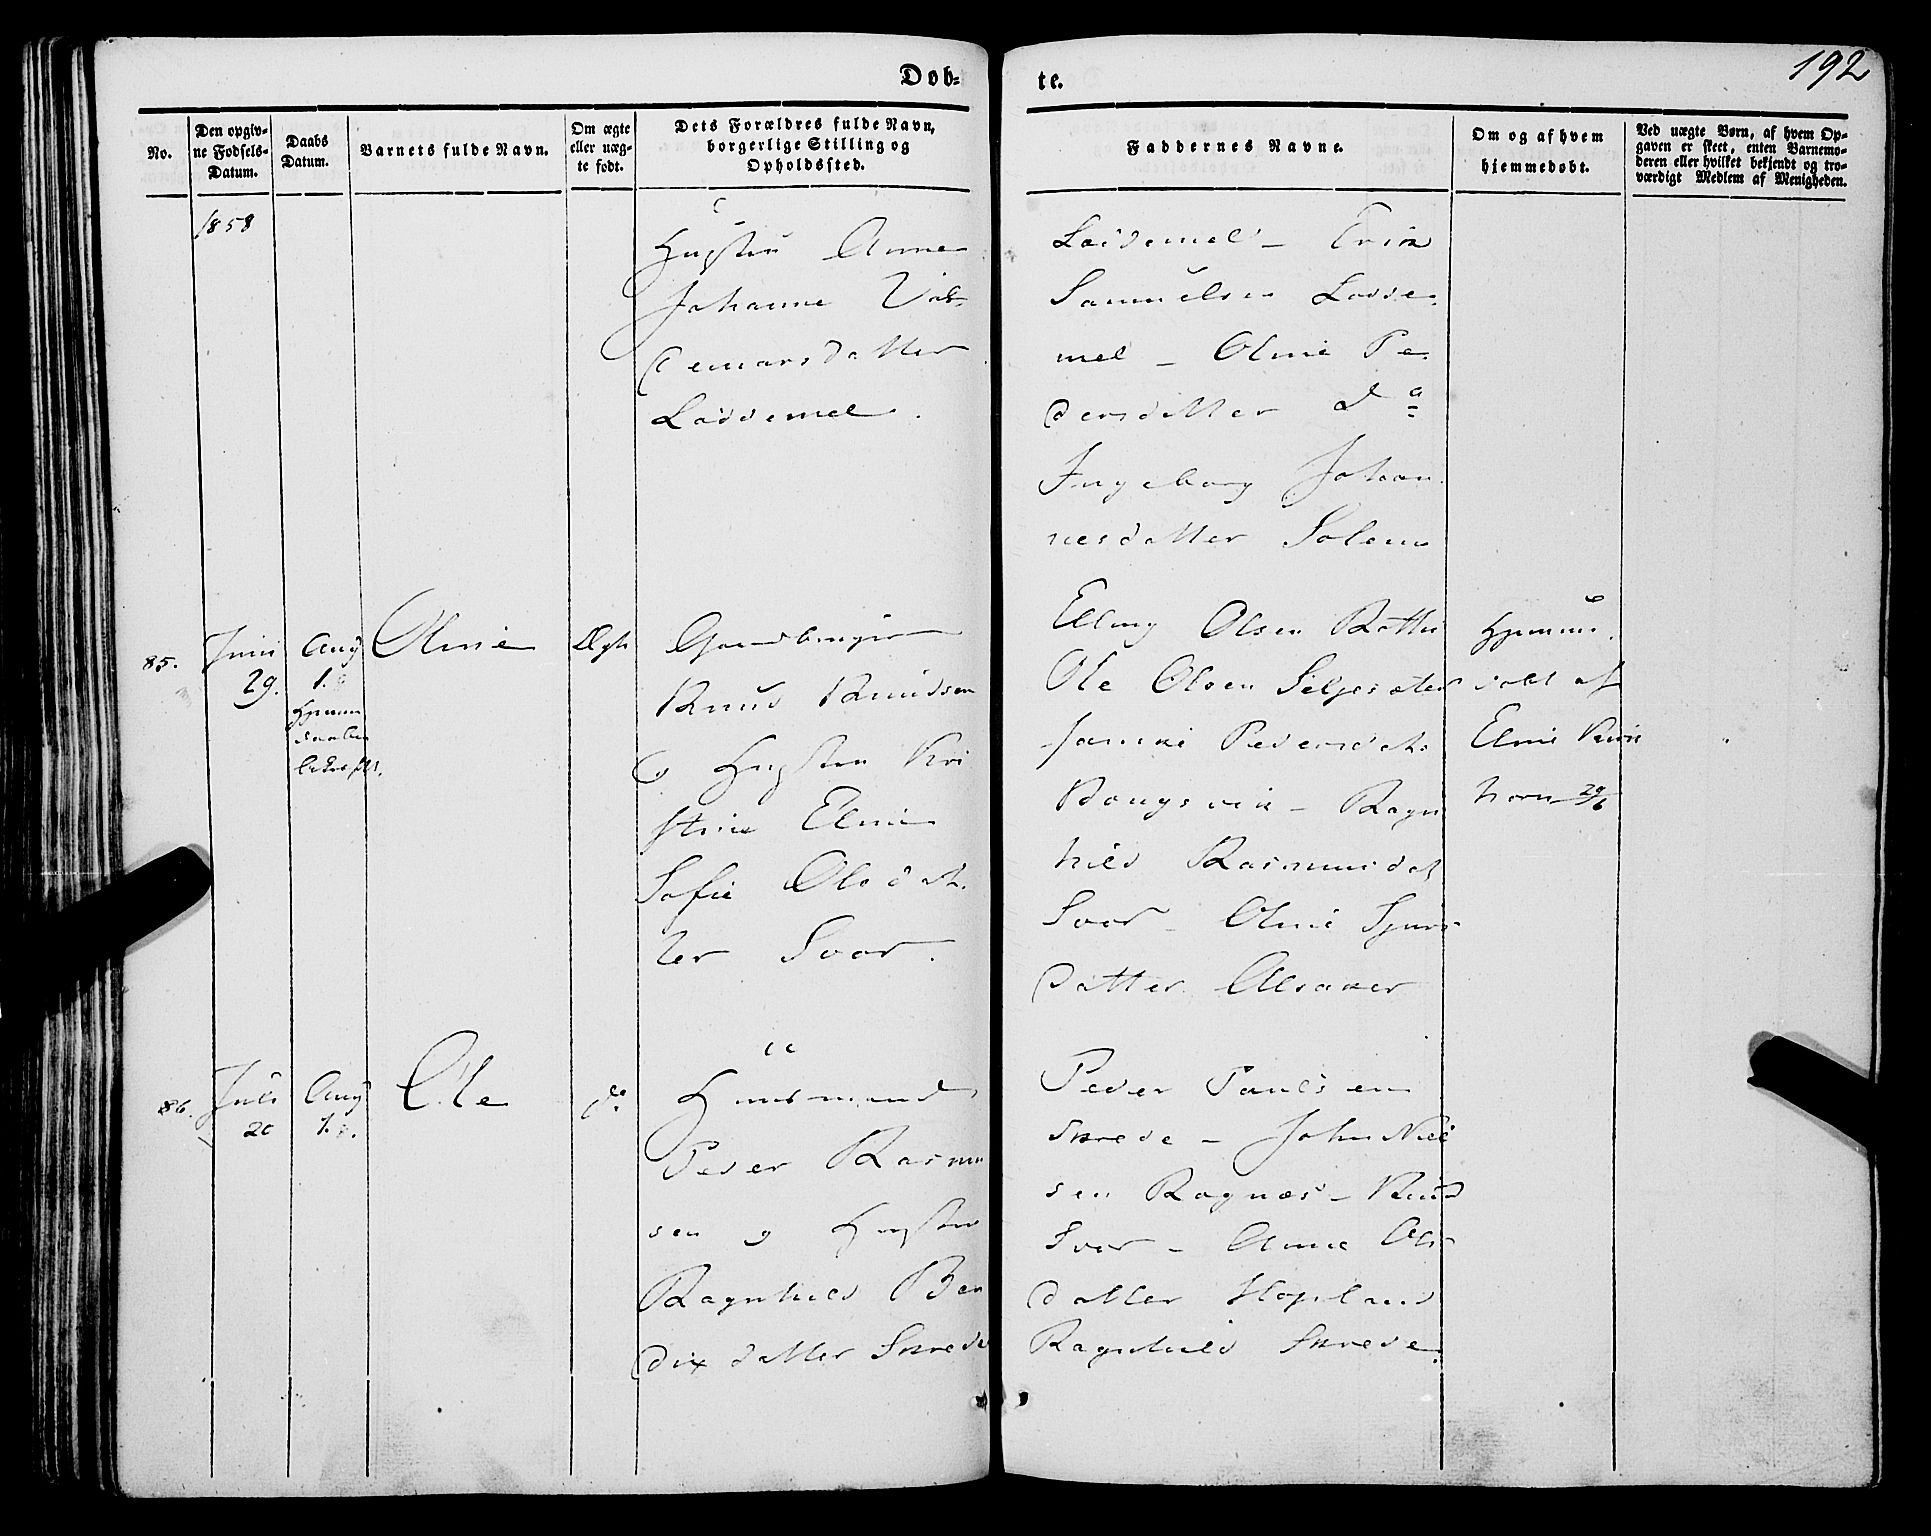 192
Døb-
te.
No.
Den opgiv-
ne Fødsels-
Datum.
Daabs
Datum.
Barnets fulde Navn.
Om ægte
eller uæg-
te født.
Dets Forældres fulde Navn,
borgerlige Stilling og
Opholdssted.
Faddernes Navne.
Om og af hvem
hjemmedøbt.
Ved uægte Børn, af hvem Op-
gaven er skeet, enten Barnemo-
deren eller hvilket bekjendt og tro-
værdigt Medlem af Menigheden.
1858
Hustru Anne
Johanne Val-
demarsdatter
Loddemel.
Loddemel - Erik
Samuelsen Lodde-
mel - Oline Pe-
dersdatter do
Ingeborg Johan-
nesdatter Solem
85.
Juni
29.
Aug
1.
Hjemme
daaben
bekræft.
Oline
Ægte
Gaardbruger
Knud Knudsen
og Hustru Kri
stine Eline
Sofie Olsdat-
ter Svor.
Elling Olsen
Ole Olsen Seljesæter
Pedersdatr
- Ragn
hild Rasmusdat
Svor - Oline Sjurs
datter Alsaker
Hjemme-
døbt af
Eline
horn 29/6
86.
Juli
20
Aug
1.
Ole
do
Huusmand
Peder Rasmu
sen og Hustru
Ragnhild Ben
dixdatter Skrede
Peder Paulsen
Skrede - John Niel
sen Ragnæs - Knud
Svor - Anne Ols
datter Hopland
Ragnhild Skrede.